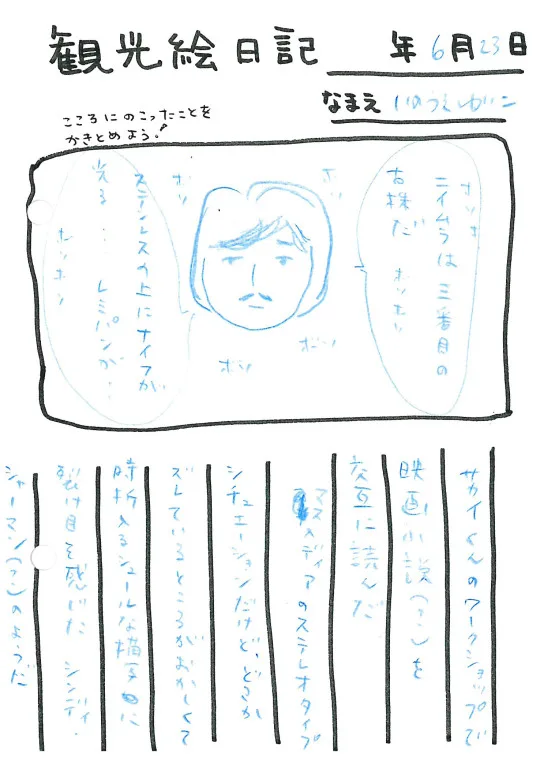 観光絵日記
年6月23日
なまえ いのうえゆりこ
こころにのこったことを
かきとめよう!
ボソボソ
ニイムラは三番目の
古株だ
ボソボソ
ボソ
ボソ
ボソ
ボソ
ステンレスの上にナイフが
光る … レミパンが…
ボソボソ
サカイくんのワークショップで
映画小説(?)を
交互に読んだ
マスメディアのステレオタイプ
シチュエーションだけど、どこか
ズレているところがおかしくて
時折入るシュールな描写に
裂け目を感じた シンディ・
シャーマン(?)のようだ